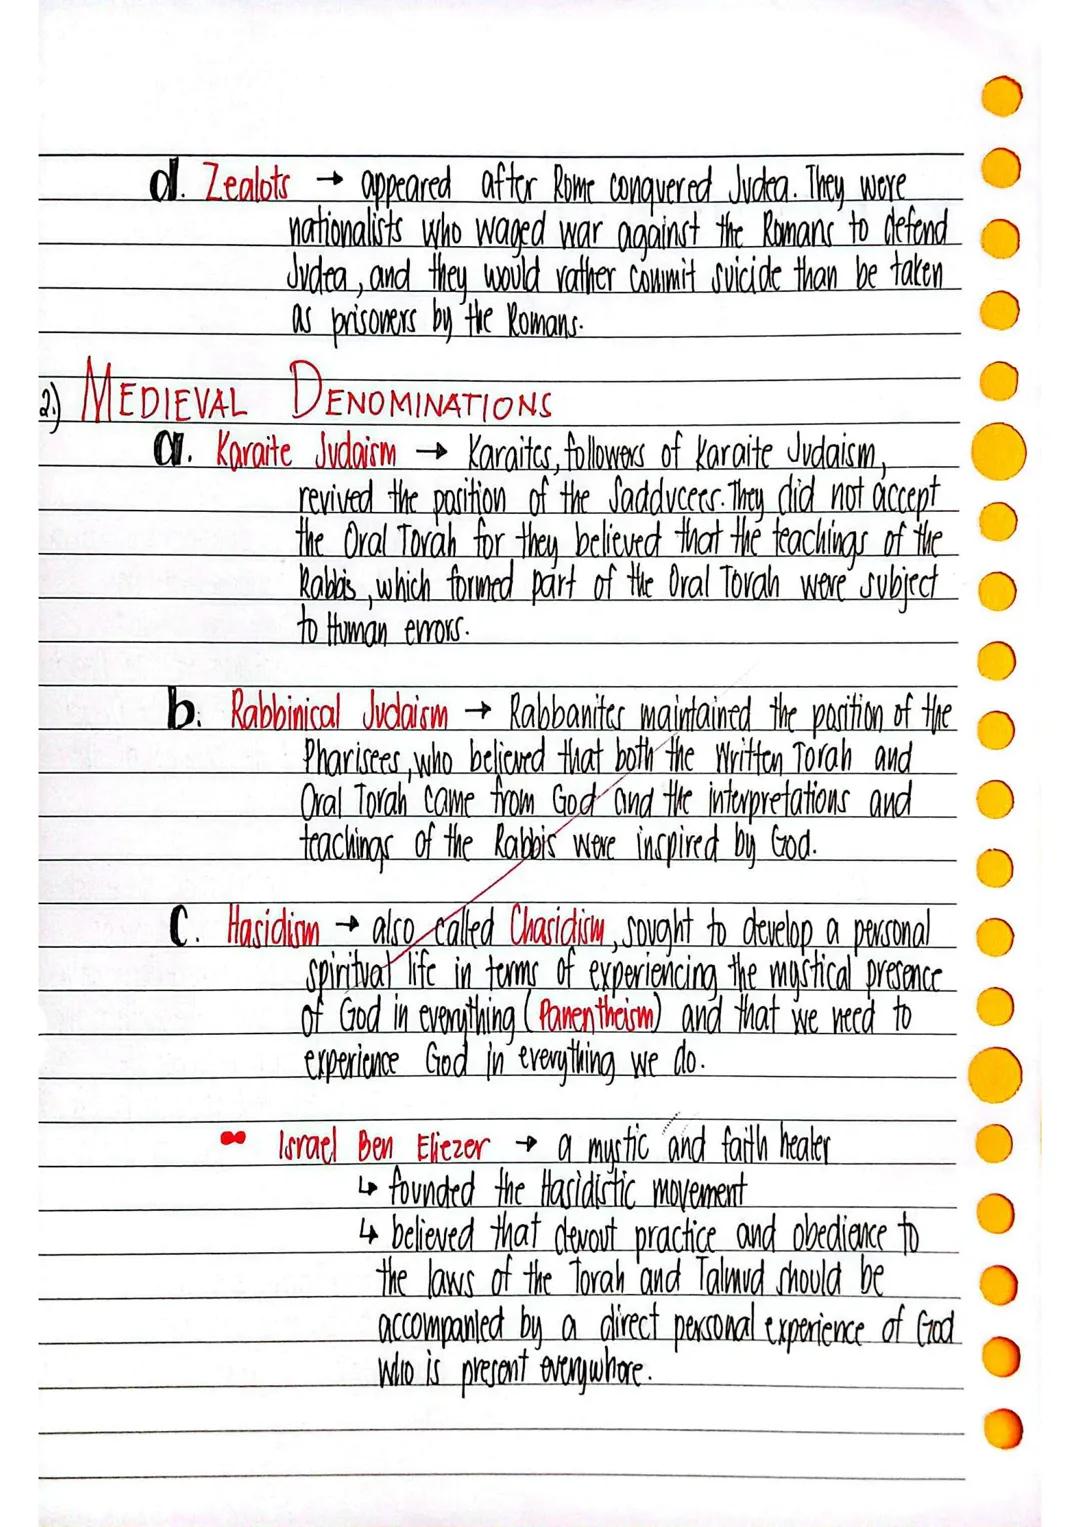 d. Zealots → appeared after Rome conquered Judea. They were
nationalists who waged war against the Romans to defend
Judea, and they would rather commit suicide than be taken
as prisoners by the Romans.
2.) MEDIEVAL DENOMINATIONS
a. Karaite Judaism → Karaites, followers of Karaite Judaism,
revived the position of the Sadducees. They did not accept
the Oral Torah for they believed that the teachings of the
Rabbis, which formed part of the Oral Torah were subject
to Human errors.
b. Rabbinical Judaism → Rabbanites maintained the position of the
Pharisees, who believed that both the Written Torah and
Oral Torah came from God and the interpretations and
teachings of the Rabbis were inspired by God.
c. Hasidism → also called Chasidism, sought to develop a personal
spiritual life in terms of experiencing the mystical presence
of God in everything (Panentheism) and that we need to
experience God in everything we do.
Israel Ben Eliezer → a mystic and faith healer
↳ founded the Hasidistic movement
↳ believed that devout practice and obediance to
the laws of the Torah and Talmud should be
accompanied by a direct personal experience of God
who is present everywhere.